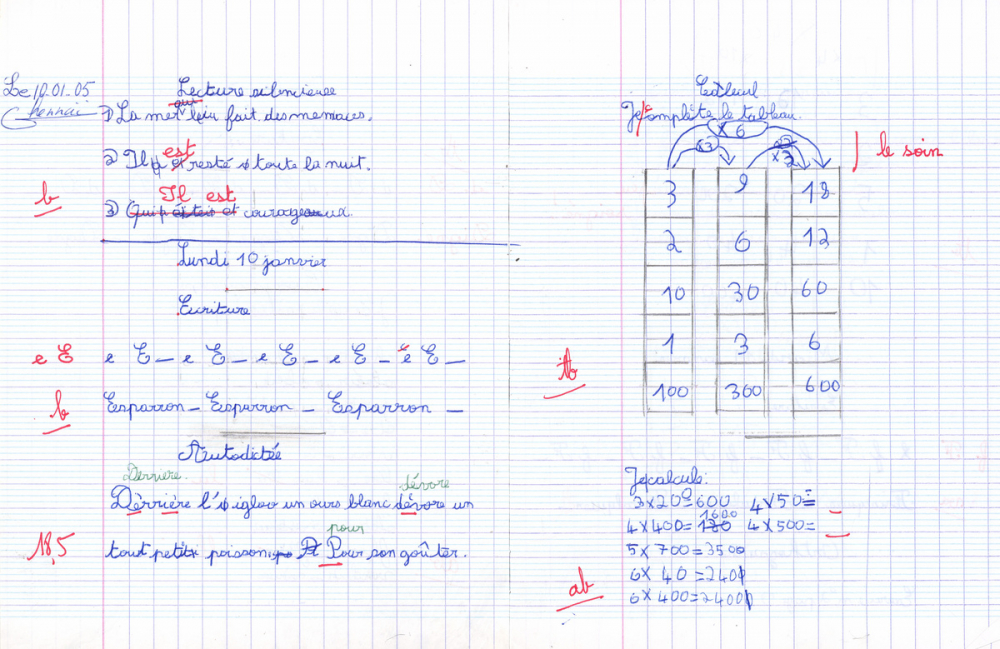 Le 10-01-05
Lecture silencieuse
qui
1) La mer lui fait des menaces.
est
2) Il est resté toute la nuit.
b
Il est
3) Qui et courageux.
Lundi 10 janvier
Ecriture
e E e E — e E — e E — e E — e E —
b
Esparron — Esparron — Esparron —
Autodictée
Derrière dévore
Dèrrière l'igloo un ours blanc dévore un
pour
18,5 tout petit poisson Pour son goûter.
Calcul
Je complète le tableau.
x 6
x3 x 2
le soin
3 9 18
2 6 12
10 30 60
1 3 6
tb
100 300 600
Je calcule.
3 x 200 = 600 4 x 50 =
1600
4 x 400 = 180 4 x 500 =
5 x 700 = 3500
6 x 40 = 240
ab
6 x 400 = 2400